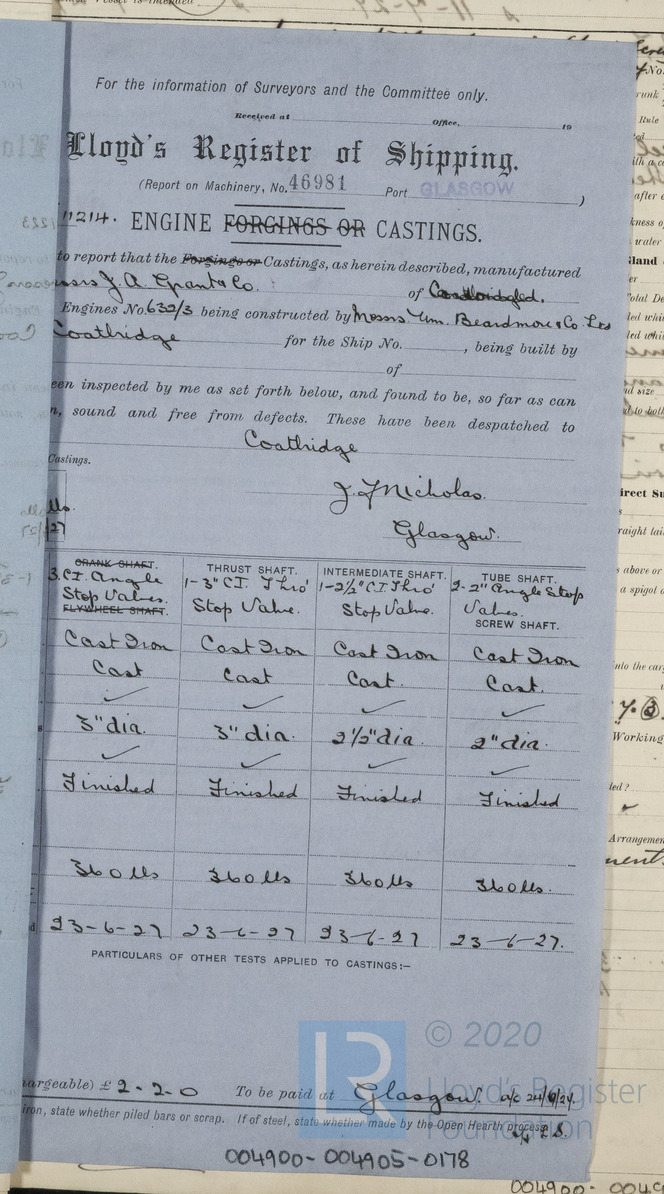 For the information of Surveyors and the Committee only.
Received at Office, 19
Lloyd's Register of Shipping.
(Report on Machinery, No. 46981 Port GLASGOW )
11214. ENGINE FORGINGS OR CASTINGS.
to report that the Forgings or Castings, as herein described, manufactured
J. A. Grant & Co. of Coatbridge.
Engines No. 632/3 being constructed by Messrs. Wm. Beardmore & Co. Ltd
Coatbridge for the Ship No. , being built by
of
een inspected by me as set forth below, and found to be, so far as can
n, sound and free from defects. These have been despatched to
Coatbridge
Castings.
J. F. Nicholas.
27
Glasgow.
CRANK SHAFT. THRUST SHAFT. INTERMEDIATE SHAFT. TUBE SHAFT.
3. C.I. Angle 1-3" C.I. Thro' 1-2½" C.I. Thro' 2-2" Angle Stop
Stop Valves. Stop Valve. Stop Valve. Valves.
FLYWHEEL SHAFT. SCREW SHAFT.
Cast Iron Cast Iron Cast Iron Cast Iron
Cast Cast Cast. Cast.
✓ ✓ ✓ ✓
3" dia. 3" dia. 2½" dia. 2" dia.
✓ ✓ ✓ ✓
Finished Finished Finished Finished
360 lbs 360 lbs 360 lbs 360 lbs.
23-6-27 23-6-27 23-6-27 23-6-27.
PARTICULARS OF OTHER TESTS APPLIED TO CASTINGS:—
argeable) £ 2-2-0 To be paid at Glasgow. a/c
iron, state whether piled bars or scrap. If of steel, state whether made by the Open Hearth process
© 2020
Lloyd's Register
Foundation
004900-004905-0178